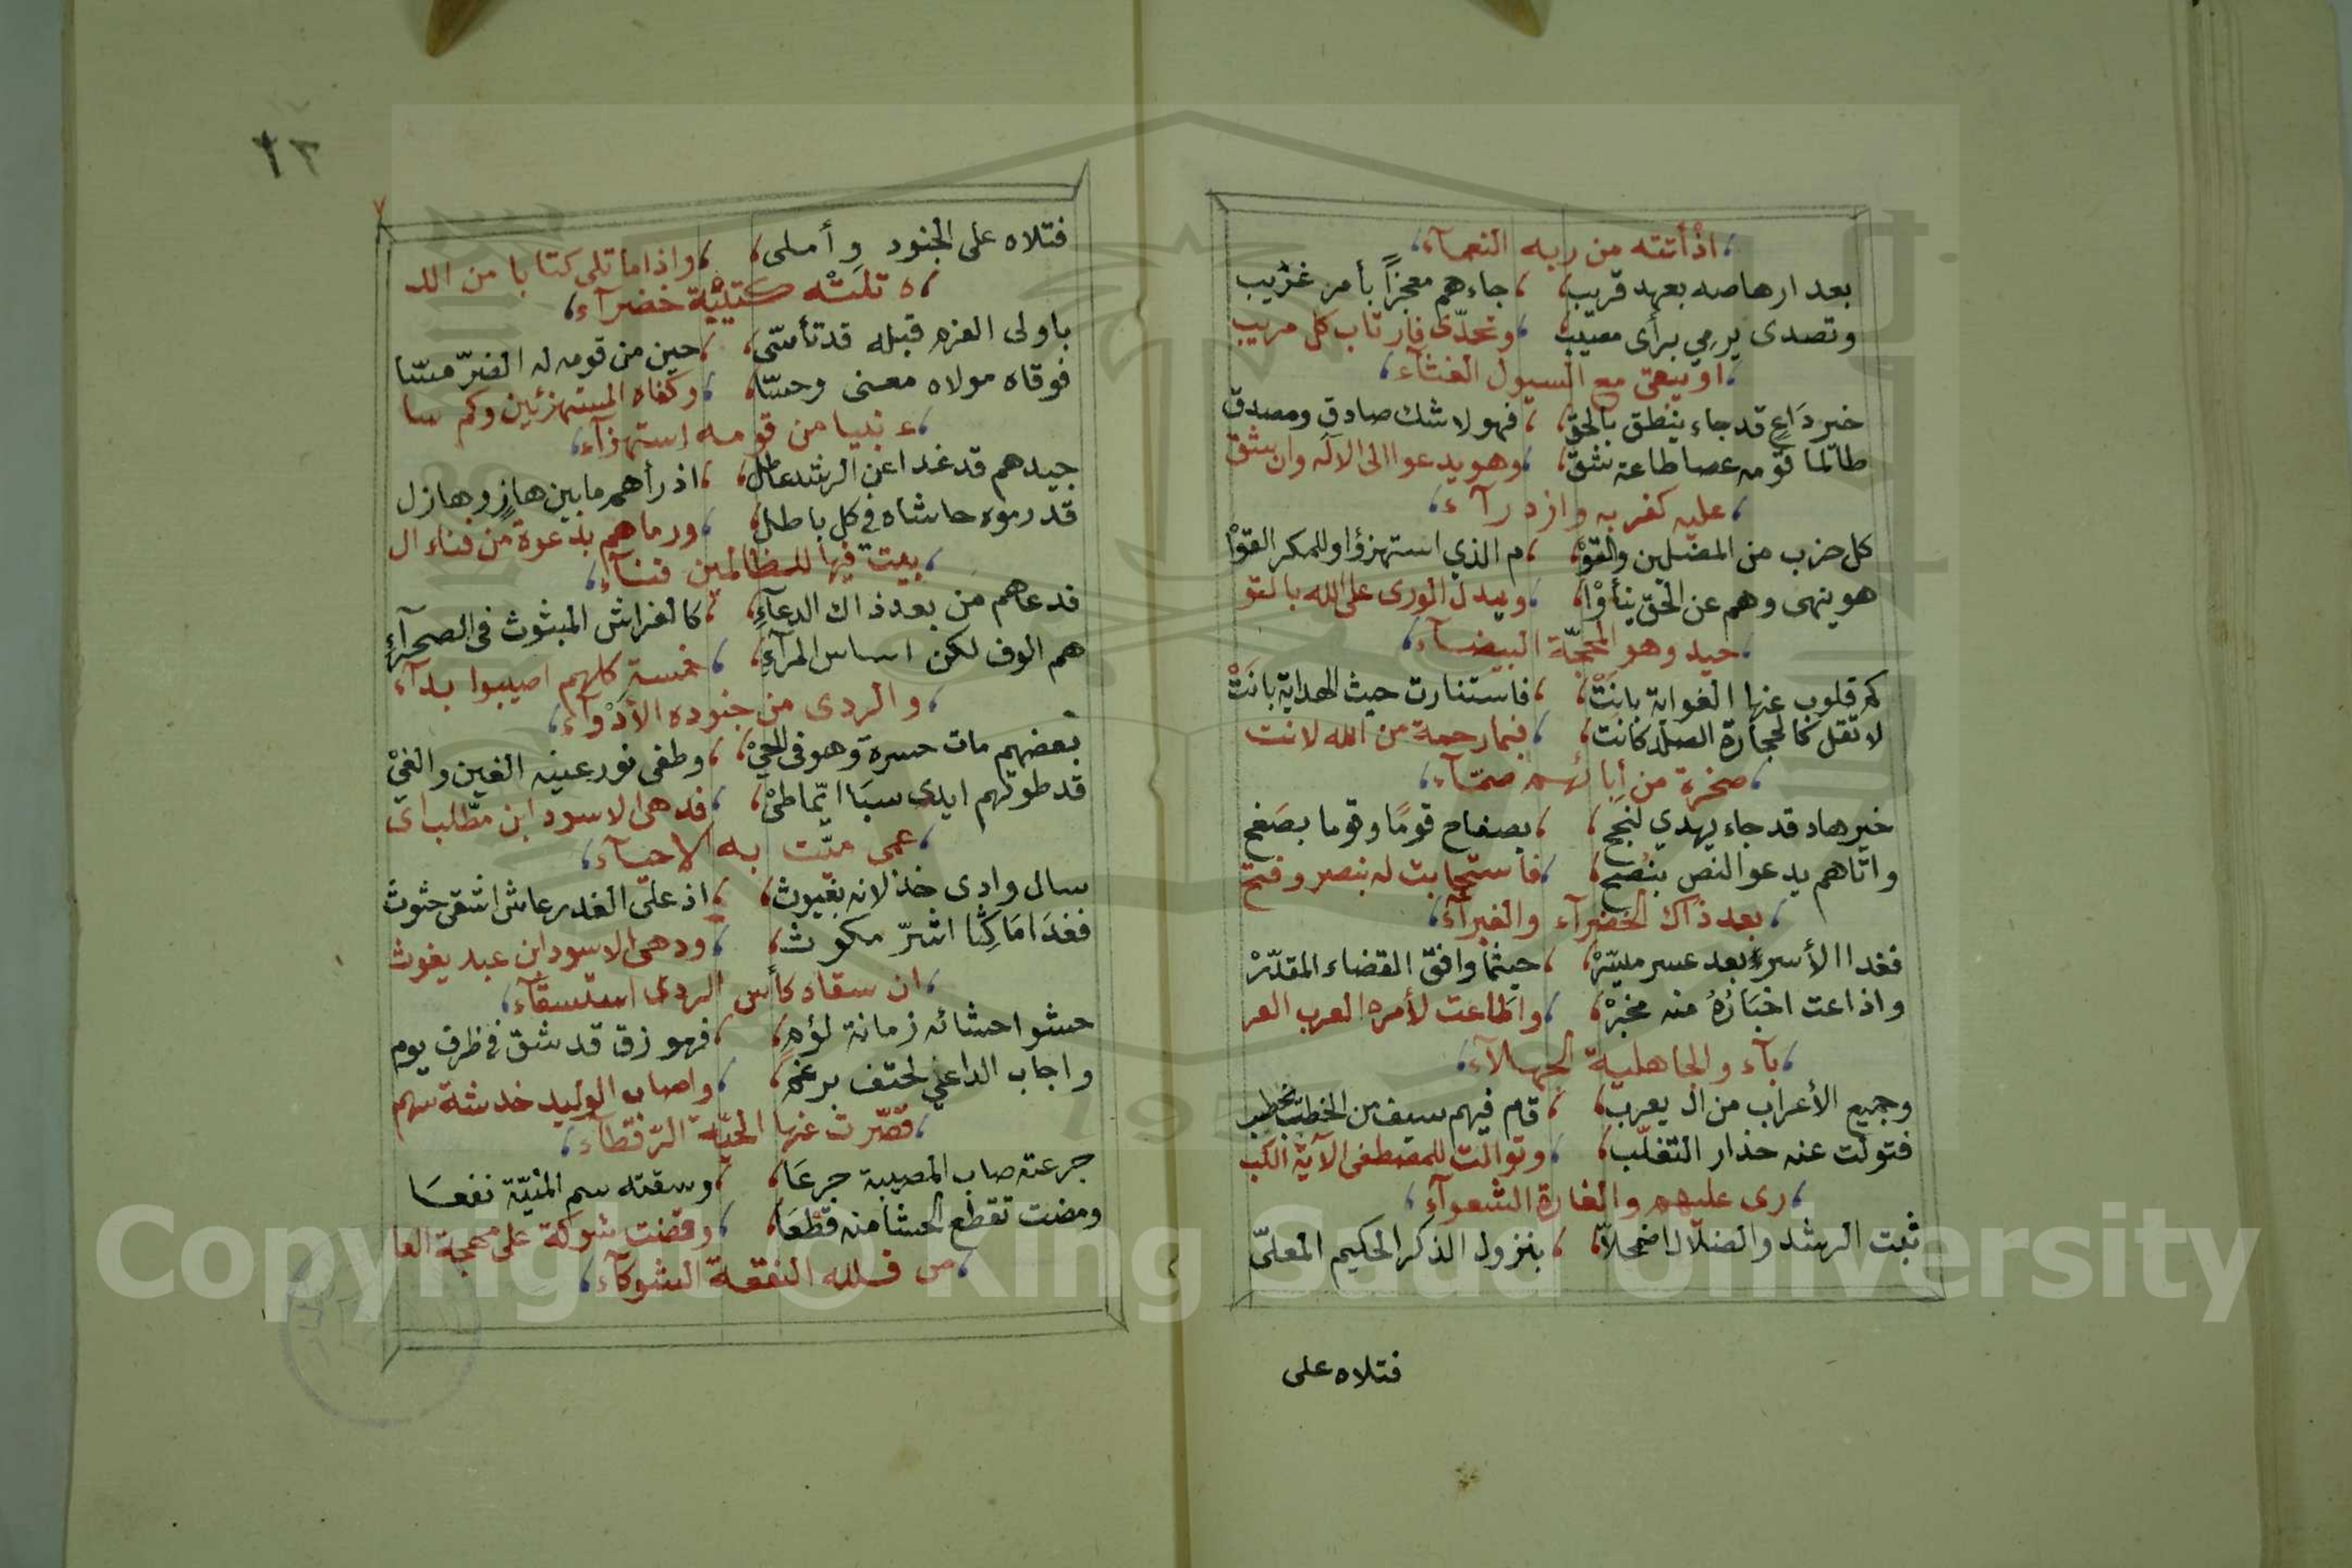 اذْ أتته من ربه النعمآء
بعد ارهاصه بعهد قريب، جاءهم معجزاً بأمر غريب
وتصدى يرمي برأى مصيب، وتحدّى فارتاب كل مريب
او يبقى مع السيول الغثآء
خير دَاعٍ قد جاء ينطق بالحق، فهو لا شك صادق ومصدق
طالما قومه عصا طاعته شق، وهو يدعوا الى الاله وان شق
عليه كفر به وازدرآء
كل حزب من المضلين والقوْ، م الذي استهزؤا وللمكر القوْا
هو ينهى وهم عن الحق ينأوْا، ويدل الورى على الله بالتو
حيد وهو المحجّة البيضآء
كم قلوب عنها الغواية بانتْ، فاستنارت حيث الهداية بانتْ
لا تقل كالحجارة الصلد كانت، فبما رحمة من الله لانت
صخرة من أبائهم صمّآء
خير هاد قد جاء يهدي لنجح، بصفاح قومًا وقوما بصَفح
واتاهم يدعو النص بنُصح، فاستجابت له بنصر وفتح
بعد ذاك الخضرآء والغبرآء
فغدا الأسر بعد عسر ميسّرْ، حيثما وافق القضاء المقدّرْ
واذاعت اخبَارُهُ منه مخبرْ، واطاعت لأمره العرب العر
بآء والجاهلية الجهلآء
وجميع الأعراب من ال يعرب، قام فيهم سيف من الخطب يخطب
فتولت عنه حذار التغلّب، وتوالت للمصطفى الآية الكب
رى عليهم والغارة الشعوآء
ثبت الرشد والضلّال اضمحلّا، بنزول الذكر الحكيم المعلىّ
فتلاه على
٢٢
فتلاه على الجنود وأملى، واذا ما تلى كتابا من الله
ه تلتْه كتيبة خضرآء
باولى العزم قبله قد تأسّى، حين من قومه له الضرّ مسّا
فوقاه مولاه معنى وحسّا، وكفاه المستهزئين وكم سا
ء نبيا من قومه استهزآء
جيدهم قد غدا عن الرشد عاطل، اذ رأهم ما بين هازٍ وهازل
قد رموه حاشاه في كل باطل، ورماهم بدعوة من فناء ال
بيت فيها للظالمين فنآء
فدعاهم من بعد ذاك الدعآءِ، كالفراش المبثوث فى الصحرآءِ
هم الوف لكن اساس المرآءِ، خمسة كلهم اصيبوا بدآء
والردى من جنوده الأدْوآء
بعضهم مات حسرة وهو فى الحيْ، وطفى نور عينه الغين والغيْ
قد طوتهم ايدى سبَا ايّما طيْ، فدهى الاسود ابن مطّلب اى
عمى ميّت به الاحيآء
سال وادى خذلانه بغيوث، اذ على الغدر عاش اشقى حثوث
فغدَا مَاكِثًا اشرّ مكوث، ودهى الاسود ابن عبد يغوث
ان سقاه كأس الردى استسقآء
حشو احشائه زمانة لؤم، فهو زق قد شق فى ظرف يوم
واجاب الداعي لحتف برغم، واصاب الوليد خدشة سهم
قصّرت عنها الحيّة الرّقطآء
جرعته صاب المصيبة جرعَا، وسقته سم المنيّة نفعسَا
ومضت تقطع الحشا منه قطْعَا، وقضت شوكة على مهجة العا
من فللله النقعة الشوكآء
Copyright © King Saud University